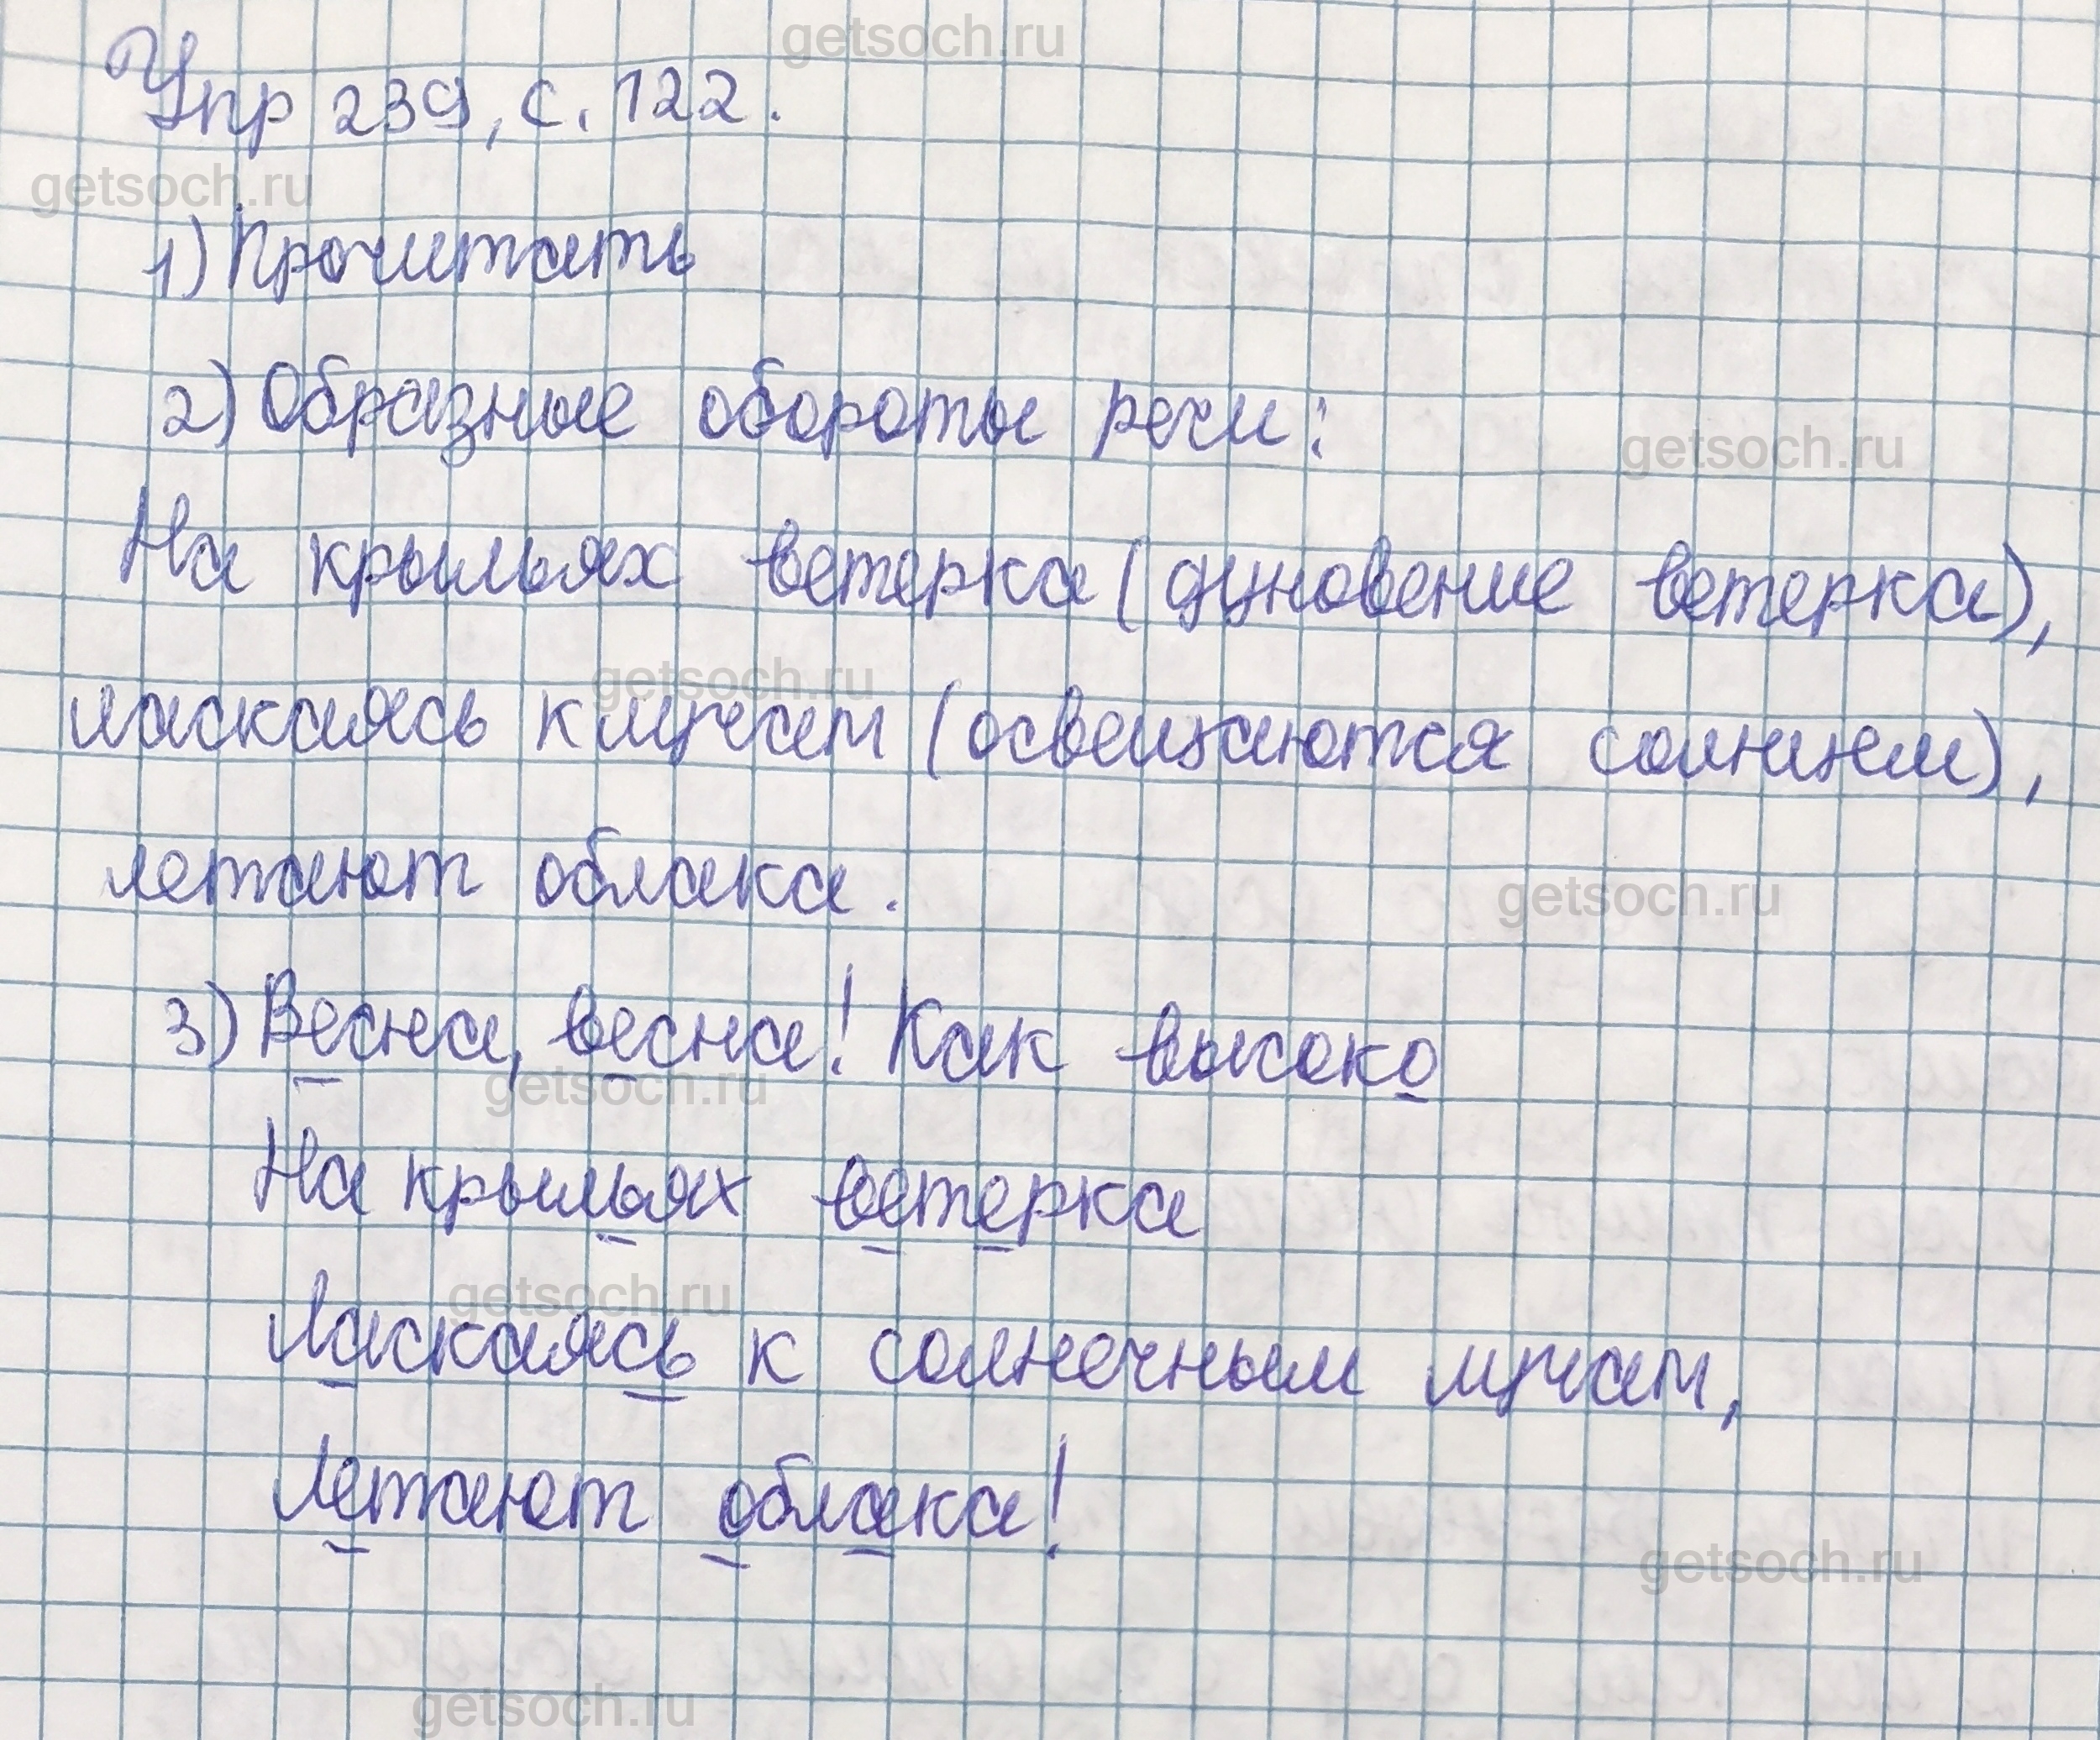 getsoch.ru
Упр 239, с. 122.
getsoch.ru
1) Прочитать
2) Образные обороты речи:
getsoch.ru
На крыльях ветерка (дуновение ветерка),
getsoch.ru
ласкаясь к лучам (освещаются солнцем),
летают облака.
getsoch.ru
3) Весна, весна! Как высоко
getsoch.ru
На крыльях ветерка
getsoch.ru
Ласкаясь к солнечным лучам,
Летают облака!
getsoch.ru
getsoch.ru